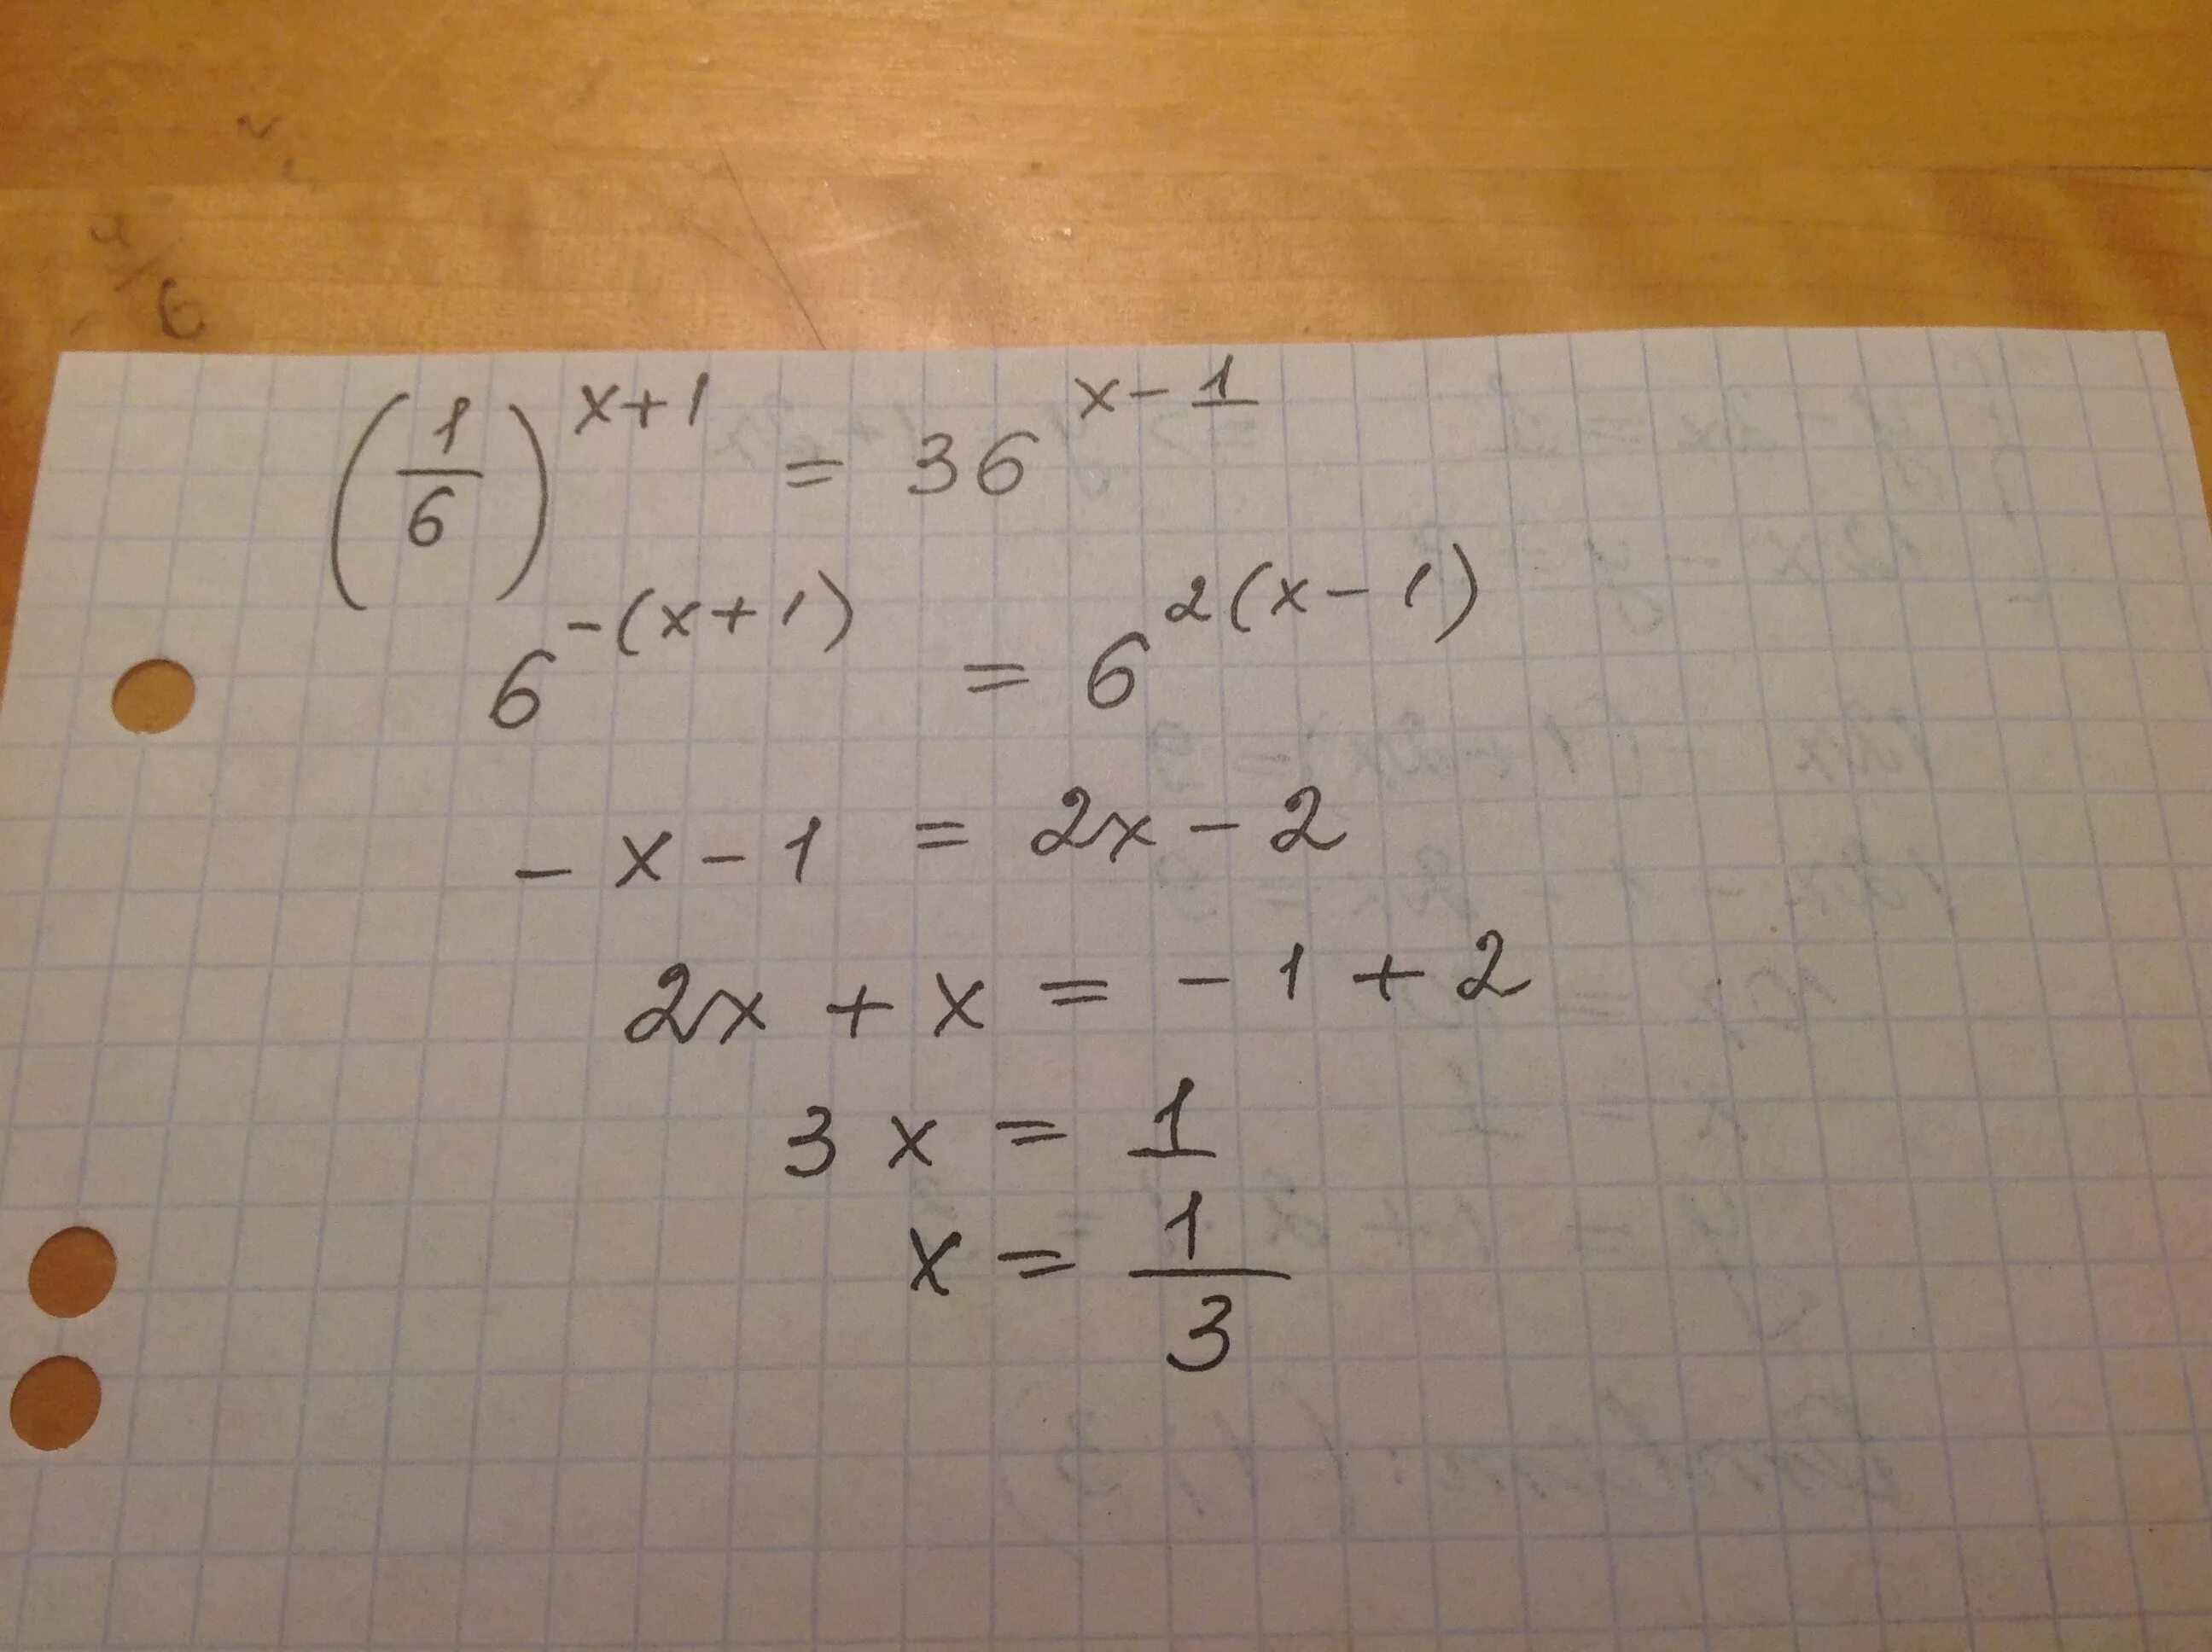 (1/6)^(x+1) = 36^(x-1)
6^(-(x+1)) = 6^(2(x-1))
-x-1 = 2x-2
2x + x = -1+2
3x = 1
x = 1/3